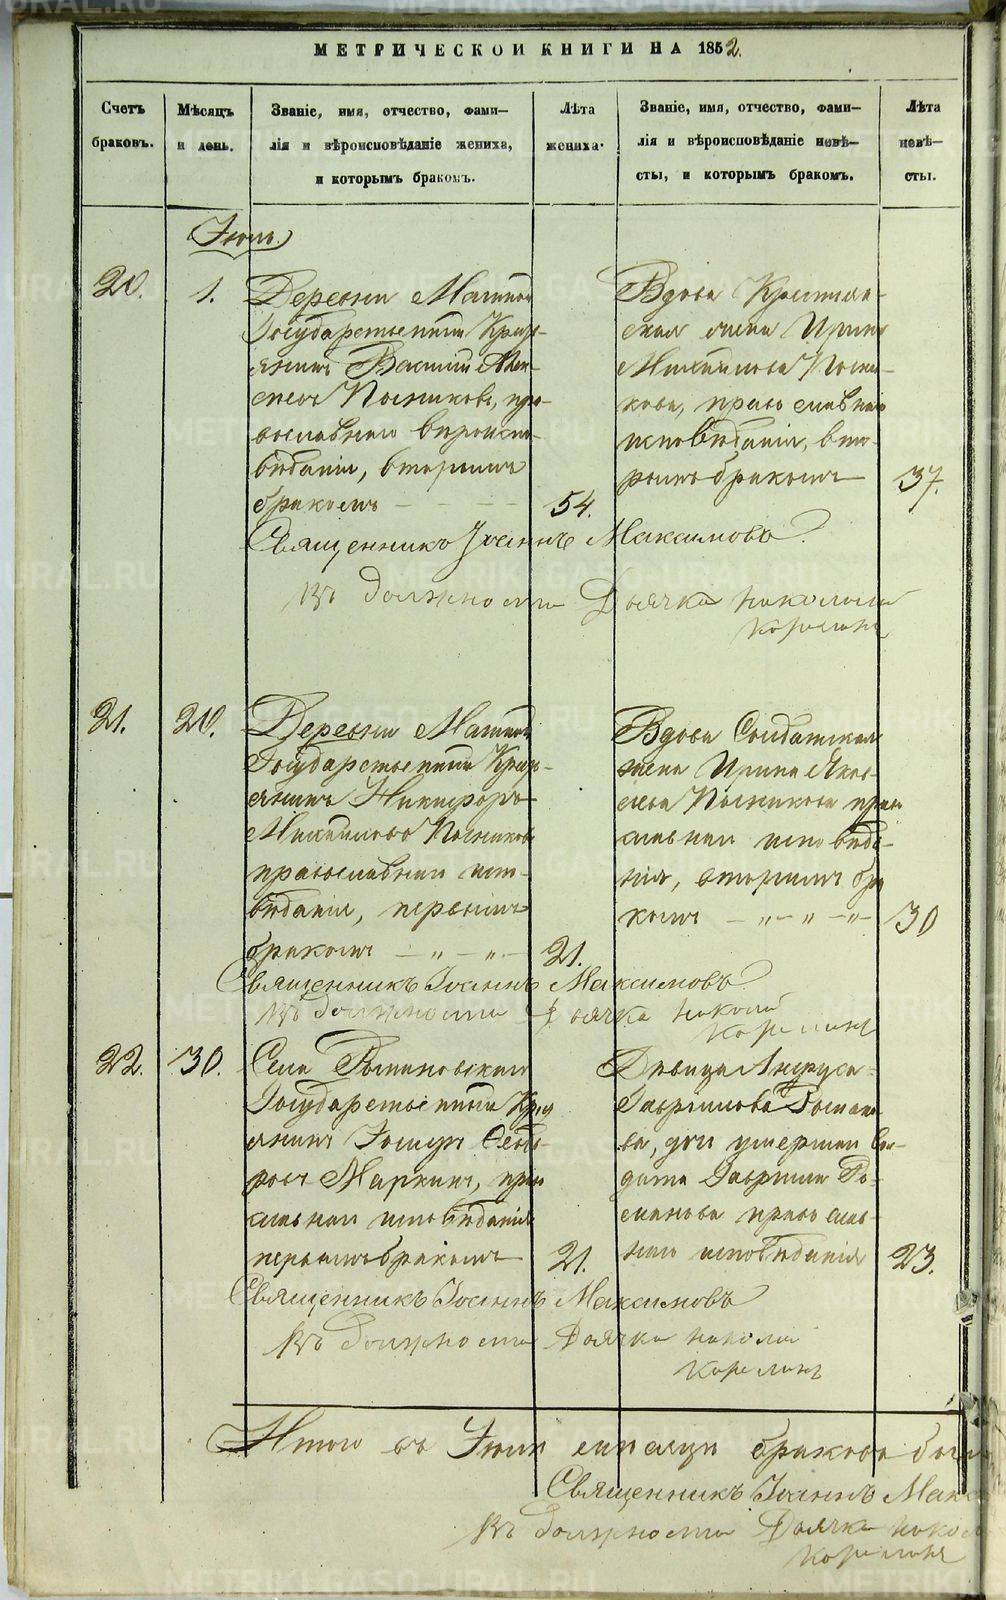 МЕТРИЧЕСКОЙ КНИГИ НА 1852.
Счетъ
браковъ.
Мѣсяцъ
и день.
Званіе, имя, отчество, фами-
лія и вѣроисповѣданіе жениха,
и которымъ бракомъ.
Лѣта
жениха.
Званіе, имя, отчество, фами-
лія и вѣроисповѣданіе невѣ-
сты, и которымъ бракомъ.
Лѣта
невѣ-
сты.
20.
1.
Деревни
Государственный Кресть-
янинъ Василий Алек-
Посниковъ, пра-
вославнаго вѣроиспо-
вѣданія, вторымъ
бракомъ
54.
Вдова Крестьян-
ская жена Ирина
Михайлова Посни-
кова, православнаго
исповѣданія, вто-
рымъ бракомъ
37.
Священникъ Іоаннъ Максимовъ.
Въ должности Дьячка Николай
Корелинъ
21.
20.
Деревни
Государственный Кресть-
янинъ Никифоръ
Михайловъ Посниковъ
православнаго испо-
вѣданія, первымъ
бракомъ — „ — „ —
21.
Вдова Солдатская
жена Ирина Яков-
лева Посникова право-
славнаго исповѣда-
нія, вторымъ бра-
комъ — „ — „ — „ —
30
Священникъ Іоаннъ Максимовъ
Въ должности Дьячка Николай
Корелинъ
22.
30.
Села
Государственный Крес
янинъ Ѳедо-
ровъ Маркинъ, право
славнаго исповѣданія
первымъ бракомъ
21.
Дѣвица
Гаврилова Романо-
ва, дочь умершаго Сол-
дата Гаврила Ро-
манова православ-
наго исповѣданія
23.
Священникъ Іоаннъ Максимовъ
Въ должности Дьячка Николай
Корелинъ
Итого въ мѣсяцѣ браковъ
Священникъ Іоаннъ Макс
Въ должности Дьячка Никол
Корелинъ
METRIKI.GASO-URAL.RU